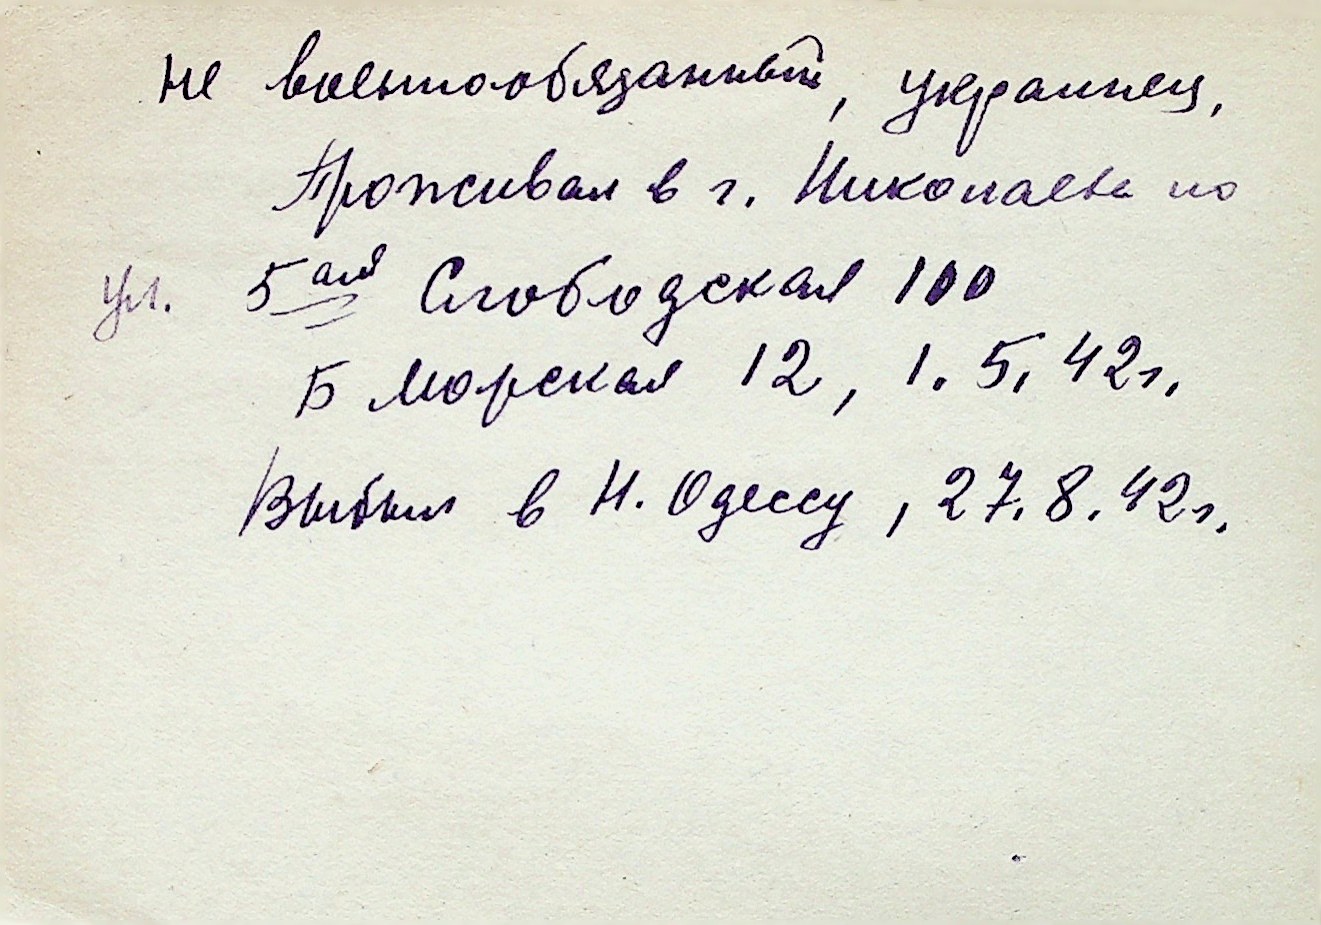 не военнообязанный, украинец,
Проживал в г. Николаеве по
ул. 5ая Слободская 100
Б Морская 12, 1.5.42г.
Выбыл в Н. Одессу, 27.8.42г.